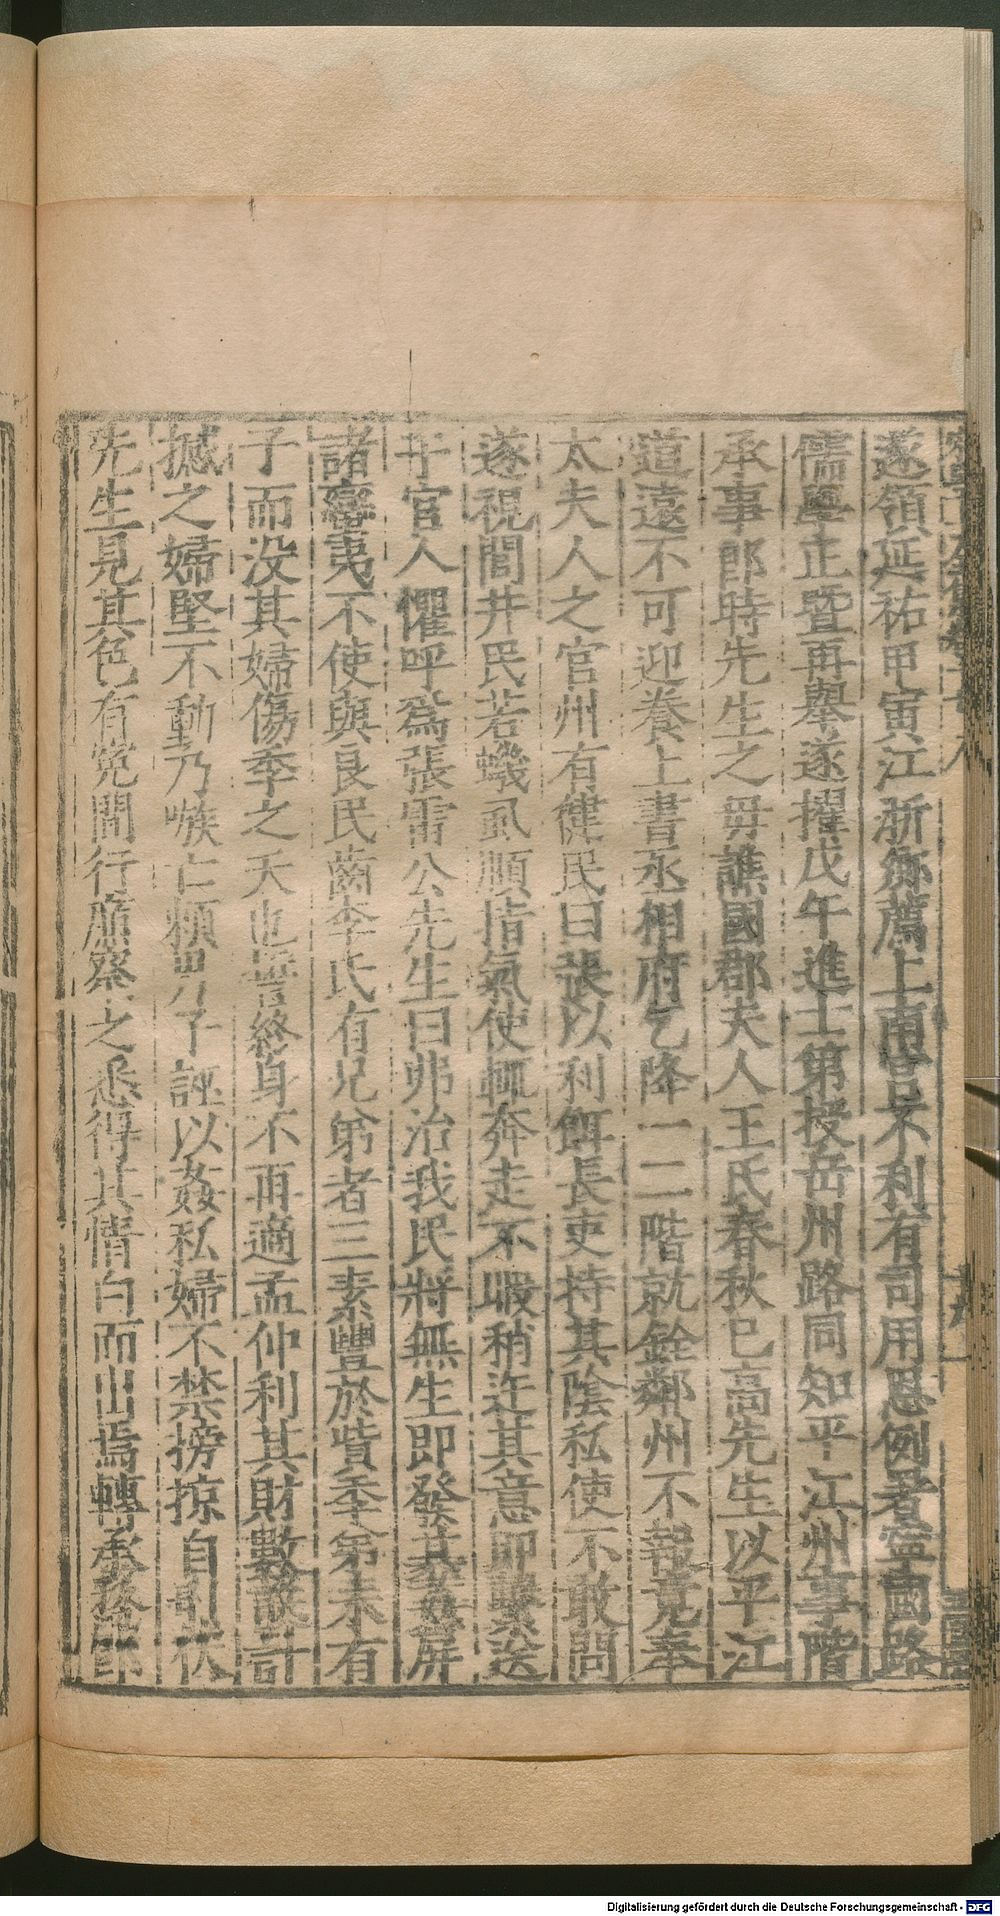 遂領延祐甲寅江浙鄉薦上南宮不利有司用恩例署寧國路
儒學正暨再舉遂擢戊午進士第授岳州路同知平江州事階
承事郎時先生之母譙國郡夫人王氏春秋已高先生以平江
道遠不可迎養上書丞相府乞降一二階就銓鄰州不報竟奉
太夫人之官州有健民曰張以利餌長吏持其陰私使不敢問
遂視閭井民若蟣虱順指氣使輒奔走不暇稍迕其意即繫送
于官人懼呼為張雷公先生曰弗治我民將無生即發其姦屏
諸蠻夷不使與良民齒李氏有兄弟者三素豐於貲季弟未有
子而没其婦傷季之夭也誓終身不再適孟仲利其財數設計
撼之婦堅不動乃嗾亡賴男子誣以姦私婦不禁搒掠自誣伏
先生見其色有冤間行廉察之悉得其情白而出焉轉承務郎